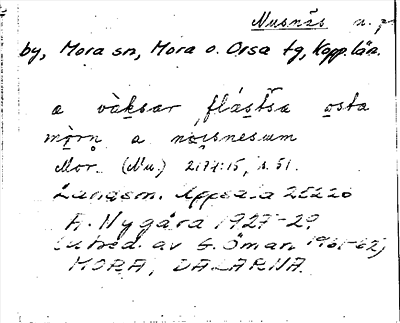 Nusnäs n. pr
by, Mora sn, Mora o. Orsa tg, Kopp. län.
a vàksar flástsa osta
mòrn a nọisnesum
Mor. (Nu.) 2171:15, s. 51.
Landsm. Uppsala 25220
A. Nygårs 1927-29
(utred. av E. Öman 1961-62)
MORA, DALARNA.